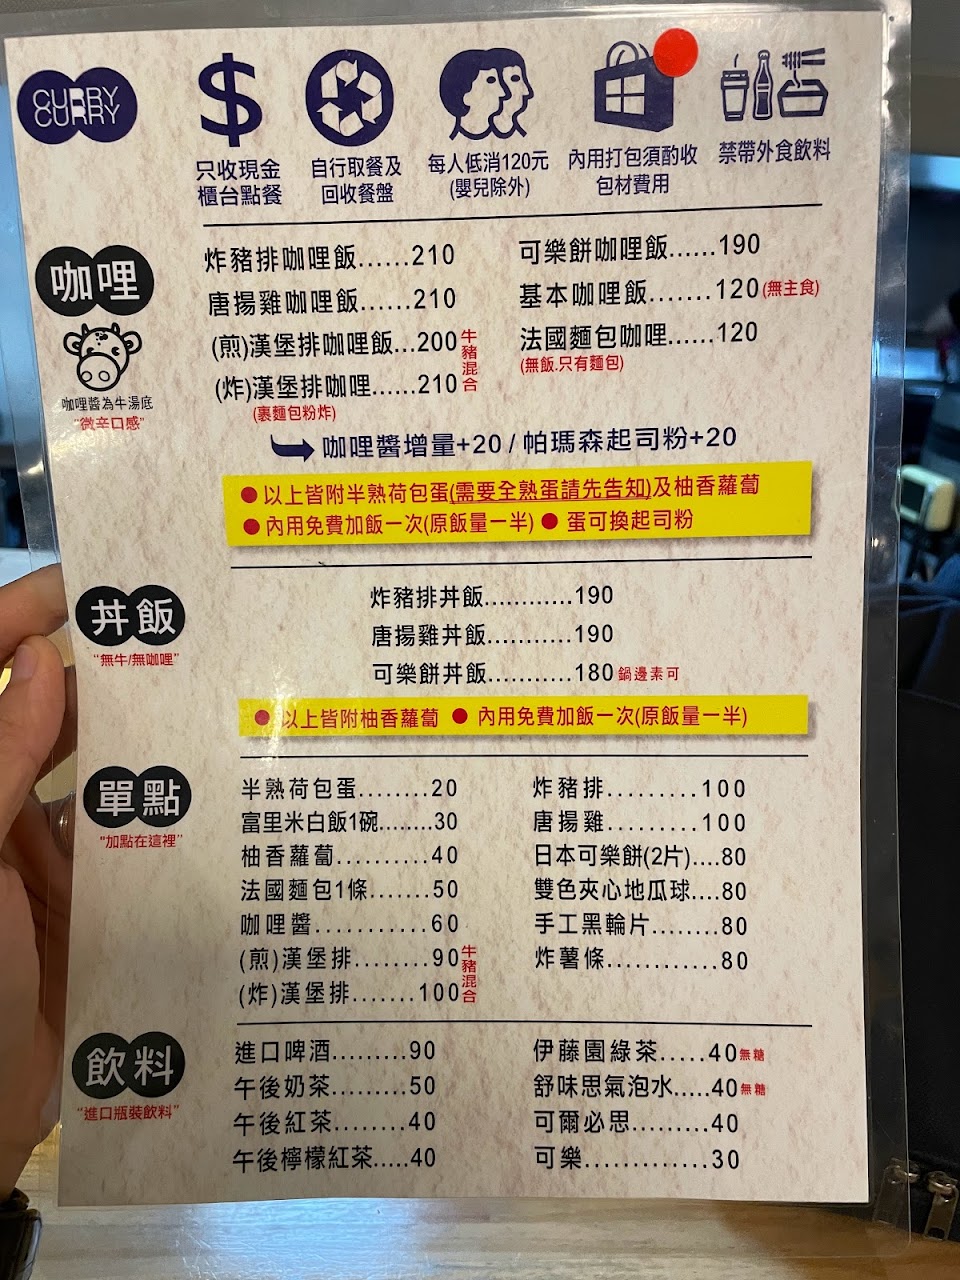 CURRY
CURRY
$
只收現金
櫃台點餐
自行取餐及
回收餐盤
每人低消120元
(嬰兒除外)
內用打包須酌收
包材費用
禁帶外食飲料
咖哩
咖哩醬為牛湯底
“微辛口感”
炸豬排咖哩飯......210
唐揚雞咖哩飯......210
(煎)漢堡排咖哩飯...200
(炸)漢堡排咖哩......210
牛豬混合
(裹麵包粉炸)
可樂餅咖哩飯......190
基本咖哩飯.......120(無主食)
法國麵包咖哩......120
(無飯.只有麵包)
咖哩醬增量+20 / 帕瑪森起司粉+20
●以上皆附半熟荷包蛋(需要全熟蛋請先告知)及柚香蘿蔔
●內用免費加飯一次(原飯量一半) ● 蛋可換起司粉
丼飯
“無牛/無咖哩”
炸豬排丼飯............190
唐揚雞丼飯...........190
可樂餅丼飯...........180 鍋邊素可
● 以上皆附柚香蘿蔔 ● 內用免費加飯一次(原飯量一半)
單點
"加點在這裡"
半熟荷包蛋........20
富里米白飯1碗........30
柚香蘿蔔..........40
法國麵包1條.......50
咖哩醬............60
(煎)漢堡排........90
(炸)漢堡排.......100
牛豬混合
炸豬排.........100
唐揚雞.........100
日本可樂餅(2片)....80
雙色夾心地瓜球....80
手工黑輪片........80
炸薯條..........80
飲料
“進口瓶裝飲料”
進口啤酒.........90
午後奶茶.........50
午後紅茶.........40
午後檸檬紅茶.....40
伊藤園綠茶.....40無糖
舒味思氣泡水.....40無糖
可爾必思.........40
可樂.............30